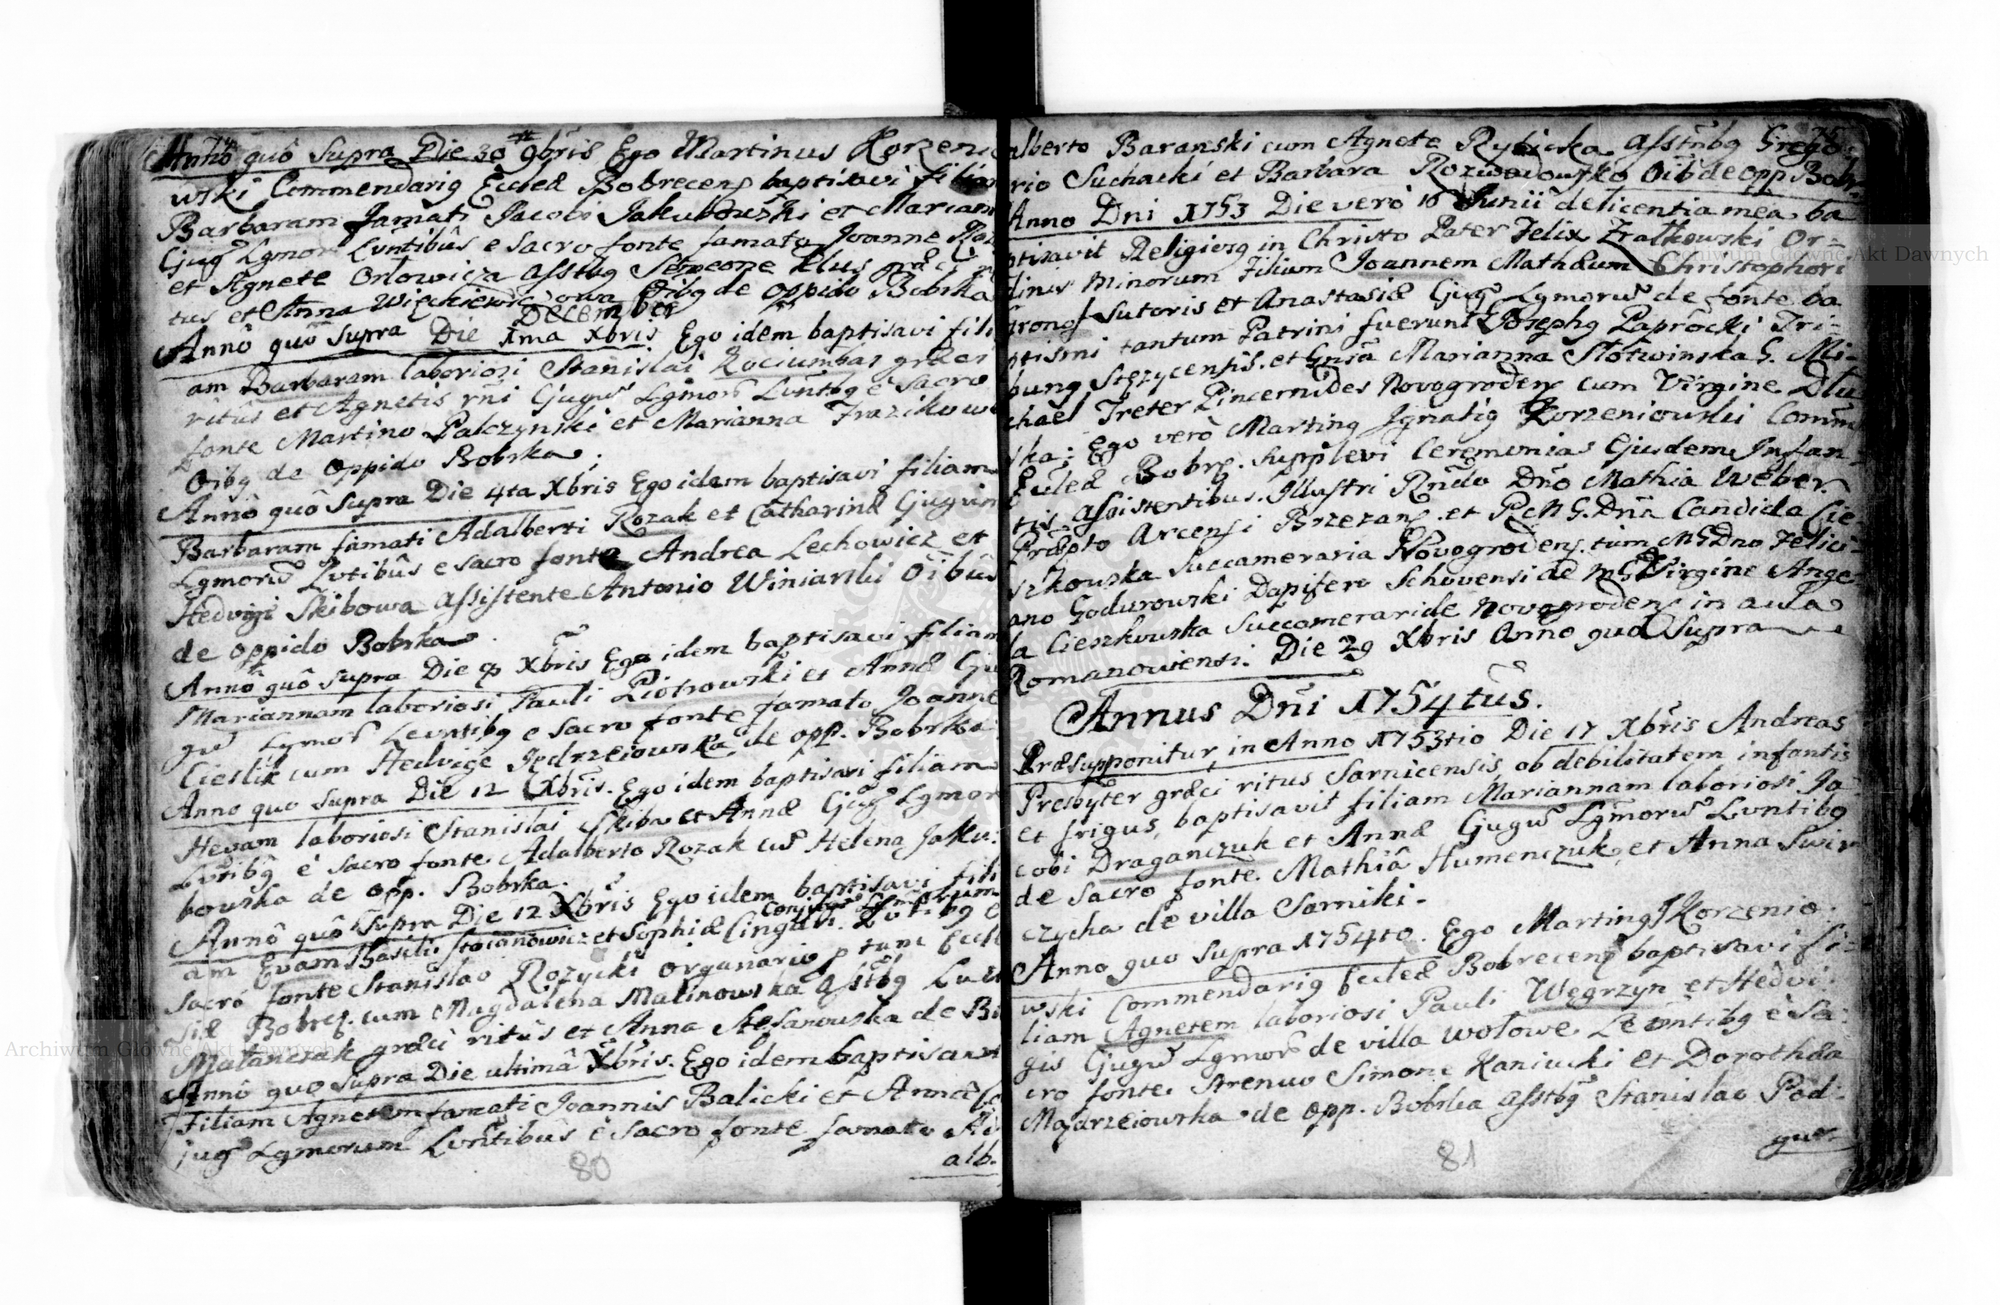 Annô quô Supra Die 30 9bris Ego Martinus Korzenio
wski Commendarig Eccleæ Bobrecens baptisavi filiam
Barbaram famati Jacobi Jakubowski et Mariannæ
Cjug Lgmor Lvntibûs e sacro fonte famato Joanne
et Agnete Orlowicza asstbg Simeone Klus græci ri
tus et Anna Więckiewiczowa Oibg de Oppido Bobrka
December
Annô quô Supra Die 1ma Xbris Ego idem baptisavi fili
am Barbaram laboriosi Stanislai Kociumbas græci
ritûs et Agnetis rni Cjugu Lgmor Lvntibg è sacro
fonte Martino Palczynski et Marianna
Oibg de Oppido Bobrka
Annô quô Supra Die 4ta Xbris Ego idem baptisavi filiam
Barbaram famati Adalberti Rozak et Catharinæ Cjugum
Lgmoru Lvtibûs e sacro fonte Andrea Lechowicz et
Hedvigi Skibowa Assistente Antonio Winiarski Oibûs
de Oppido Bobrka
Annô quô Supra Die Xbris Ego idem baptisavi filiam
Mariannam laboriosi Pauli Piotrowski et Annæ Cju
gu Lgmor Levntibg e sacro fonte famato Joanne
Cieslik cum Hedvige Jędrzeiowska de opp. Bobrka
Anno quo supra Die 12 Xbris. Ego idem baptisavi filiam
Hevam laboriosi Stanislai Skiba et Annæ Cjug Lgmor
Lvtibg è sacro fonte Adalberto Rozak cu Helena Jaku:
bowska de opp. Bobrka.
Annô quô Supra Die 12 Xbris Ego idem baptisavi fili
am Evam Basilii Stoianowicz et Sophiæ Cingar. Conjugu Lgmorum Lvtibg e
sacrô fonte Stanislao Rozycki organario p tunc Eccle
siæ Bobrec. cum Magdalena Malinowska asstbg
Malanczak græci ritûs et Anna Stefanowska de
Annô quo Supra Die ultimâ Xbris. Ego idem baptisavi
Filiam Agnetem famati Joannis Balicki et Annæ
jug Lgmorum Lvntibus è sacro fonte famato
alb.
80
75
alberto Baranski cum Agnete Rybicka asstnbg Grego:
rio Suchacki et Barbara Rozwadowska Oib de opp Bobr
Anno Dni 1753 Die verò 10 Junii de licentia mea ba
ptisavit Religiosg in Christo Pater Felix Or=
dinis Minorum Filium Joannem Mathæum Christophori
Sutoris et Anastasiæ Cjug Lgmoru de fonte ba
ptismi tantum Patrini fuerunt Josephg Paprocki Tri=
bung Stęzycensis. et Gnsa Marianna Słotwinska G. Mi=
chael Treter Pincernides Novogroden cum Virgine Dłu
ska; Ego verò Marting Jgnatig Korzeniowski Comm
Eccleæ Bobre. supplevi Ceremonias Ejusdem Infan=
tis assistentibus. Illustri Rndo Dno Mathia Weber.
Præpto Arcensi Brzezan. et P. M G. Dna Candida Cie=
szkowska Succameraria Novogrodens. tum M G Dno Felici=
ano Godurowski Dapifero Schovensi de M G Virgine Ange
la Cieszkowska Succameraride Novogrodens in aula
Romanowiensi. Die 29 Xbris Anno quo Supra
Annus Dni 1754tus.
Præsupponitur, in Anno 1753tio Die 17 Xbris Andreas
Presbyter græci ritus Sarnicensis ob debilitatem infantis
et frigus, baptisavit filiam Mariannam laboriosi Ja
cobi Draganczuk et Annæ Cjugu Lgmoru Lvntibg
de Sacro fonte. Mathiâ Humenczuk, et Anna Swir
czycha de villa Sarniki.
Anno quo supra 1754to. Ego Marting Korzenio.
wski Commendarig Eccleæ Bobrecens baptisavi fi=
liam Agnetem laboriosi Pauli Węgrzyn et Hedvi:
gis Cjugu Lgmor de villa Wołowe. Levntibg è Sa:
cro fonte. Strenuo Simone Kaniucki et Dorothæa
Mązdrzeiowska de opp. Bobrka asstbg Stanislao Pod:
gur
81
Archiwum Główne Akt Dawnych
Archiwum Główne Akt Dawnych